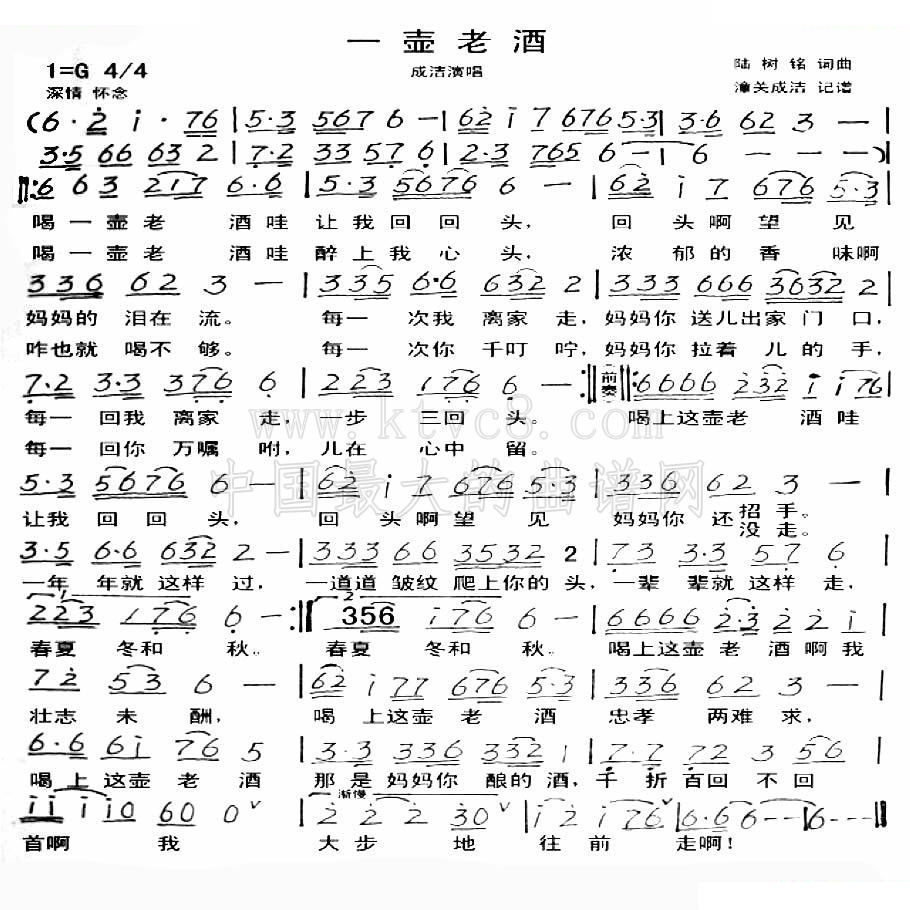 一壶老酒
1=G 4/4
成洁演唱
陆树铭 词曲
深情 怀念
潼关成洁 记谱
(6·2 i·76|5·3 5676 6—|62 i7 6765·3|3·6 62 3—|
3·5 66 63 2|7·2 33 57 6|2·3 765 6—|6——)
‖:6 63 217 6·6|5·3 5676 6—|62 i7 676 5·3|
喝一壶老 酒哇 让我回回头, 回头啊望见
喝一壶老 酒哇 醉上我心头, 浓郁的香味啊
336 62 3—|335 6·6 6322|333 666 3632 2|
妈妈的 泪在流。 每一次我离家走,妈妈你送儿出家门口,
咋也就 喝不够。 每一次你千叮咛,妈妈你拉着儿的手,
7·2 3·3 376 6|223 176 6—:‖前奏‖:6666 232 i i76|
每一回我离家走,一步三回头。 喝上这壶老酒哇
每一回你万嘱咐,儿在心中留。
www.ktvc8.com
中国最大的曲谱网
5·3 5676 6—|62 i7 676 5·3|336 62 3—|
让我回回头, 回头啊望见 妈妈你还招手。
没走。
3·5 6·6 632 2—|3333 66 3532 2|73 3·3 57 6|
一年年就这样过,一道道皱纹爬上你的头,一辈辈就这样走,
1
223 176 6—:‖
2
356 i76 6—|6666 2·3 22 i|
春夏冬和秋。 春夏冬和秋。 喝上这壶老酒啊我
72 53 6—|62 i77 676 5·3|336 62 3—|
壮志未酬, 喝上这壶老酒 忠孝两难求,
6·6 6i 76 5|3·3 336 332 1|7·7 72 3 56|
喝上这壶老酒 那是妈妈你酿的酒,千折百回不回
渐慢
ii i i0 60 0∨|2 2 2 30∨|i 2 i 76|6·66—|6—‖
首啊 我 大步地往前走啊!